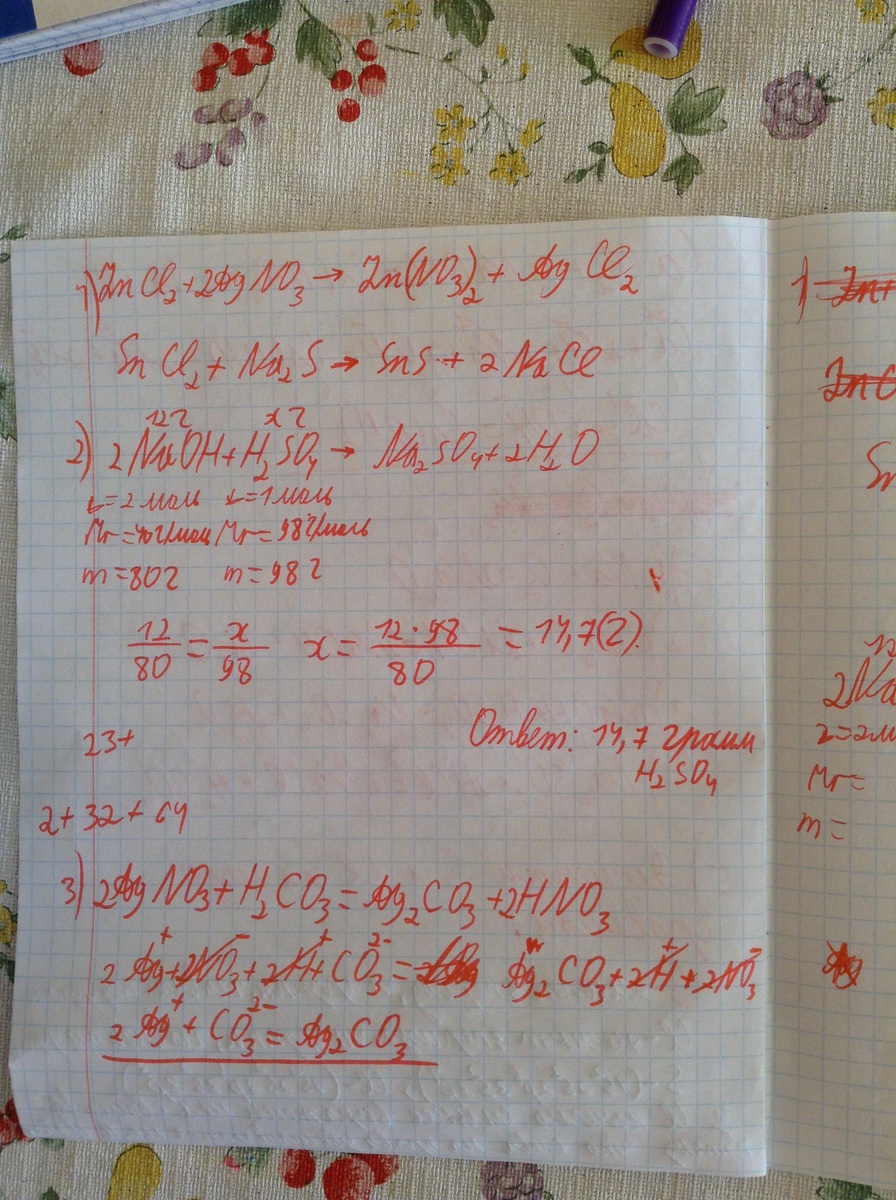 1) ZnCl₂ + 2AgNO₃ → Zn(NO₃)₂ + AgCl₂
SnCl₂ + Na₂S → SnS + 2NaCl
12г xг
2) 2NaOH + H₂SO₄ → Na₂SO₄ + 2H₂O
ν=2моль ν=1моль
Mr=40г/моль Mr=98г/моль
m=80г m=98г
12/80 = x/98 x = 12·98/80 = 14,7(г).
23+
Ответ: 14,7 грамм
H₂SO₄
2+32+64
3) 2AgNO₃ + H₂CO₃ = Ag₂CO₃ + 2HNO₃
2Ag⁺ + 2NO₃⁻ + 2H⁺ + CO₃²⁻ = Ag₂CO₃ + 2H⁺ + 2NO₃⁻
2Ag⁺ + CO₃²⁻ = Ag₂CO₃
1) Zn+
ZnC
Sn
12
2Na
ν=2м
Mr=
m=